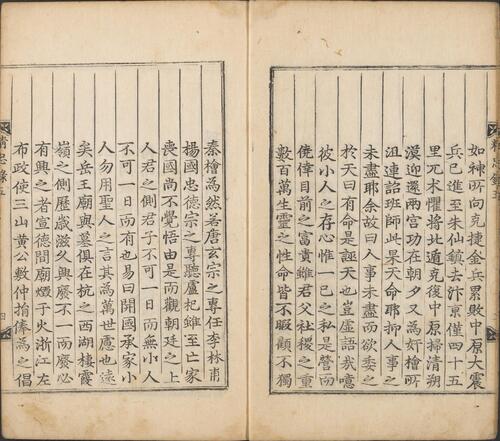 如神所向克捷金兵累敗中原大震
兵已進至朱仙鎮去汴京僅四十五
里兀术懼將北遁克復中原掃清朔
漠迎還兩宮功在朝夕又為奸檜所
沮連詔班師此果天命耶抑人事之
未盡耶余故曰人事未盡而欲委之
於天曰有命是誣天也豈虛語哉噫
彼小人之存心惟一己之私是營而
僥倖目前之富貴雖君父社稷之重
數百萬生靈之性命皆不暇顧不獨
秦檜為然若唐玄宗之專任李林甫
楊國忠德宗之專聽盧杞雖至亡家
喪國尚不覺悟由是而觀朝廷之上
人君之側君子不可一日而無小人
不可一日而有也易曰開國承家小
人勿用聖人之言其為萬世慮也遠
矣岳王廟與墓俱在杭之西湖棲霞
嶺之側歷歲滋久興廢不一而廢必
有興之者宣德間廟燬于火浙江左
布政使三山黃公數仲捐俸為之倡
精忠錄五
四